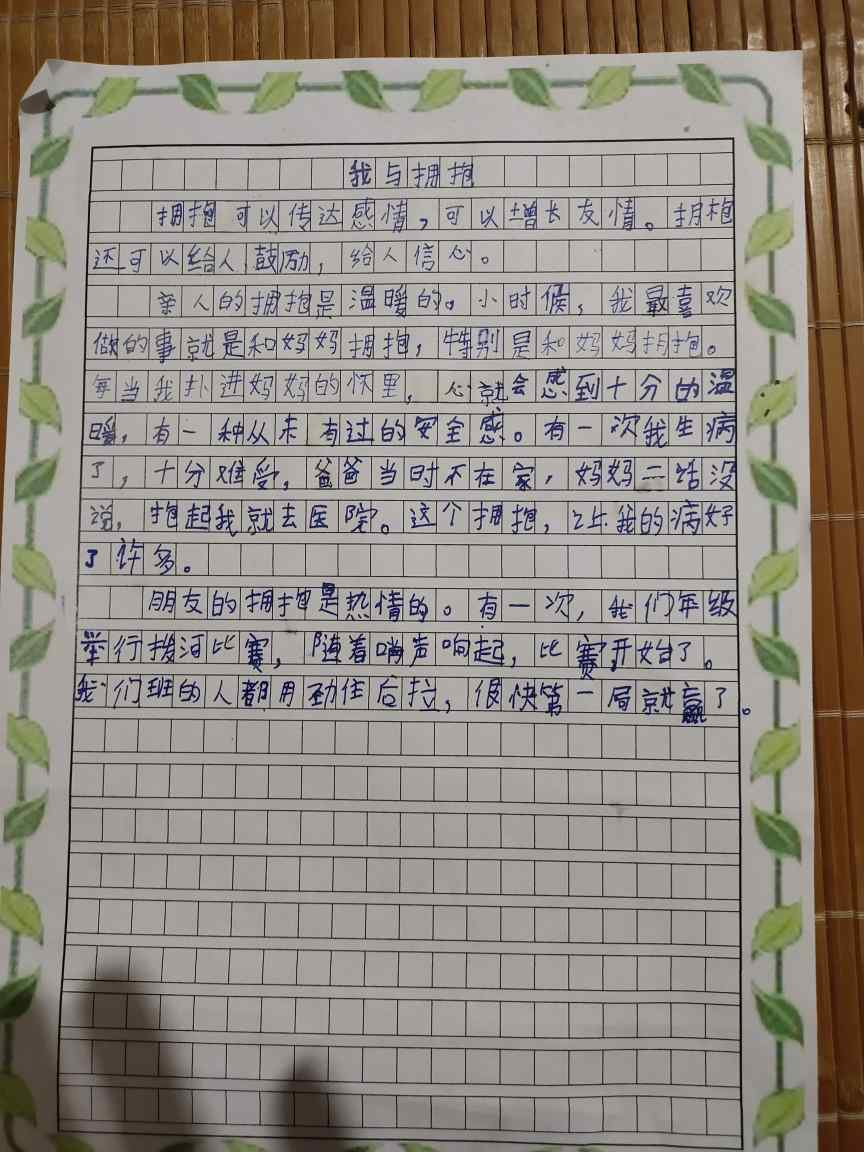 我与拥抱
拥抱可以传达感情，可以增长友情。拥抱
还可以给人鼓励，给人信心。
亲人的拥抱是温暖的。小时候，我最喜欢
做的事就是和妈妈拥抱，特别是和妈妈拥抱。
每当我扑进妈妈的怀里，心就会感到十分的温
暖，有一种从未有过的安全感。有一次我生病
了，十分难受，爸爸当时不在家，妈妈二话没
说，抱起我就去医院。这个拥抱，让我的病好
了许多。
朋友的拥抱是热情的。有一次，我们年级
举行拨河比赛，随着哨声响起，比赛开始了。
我们班的人都用劲住后拉，很快第一局就赢了。